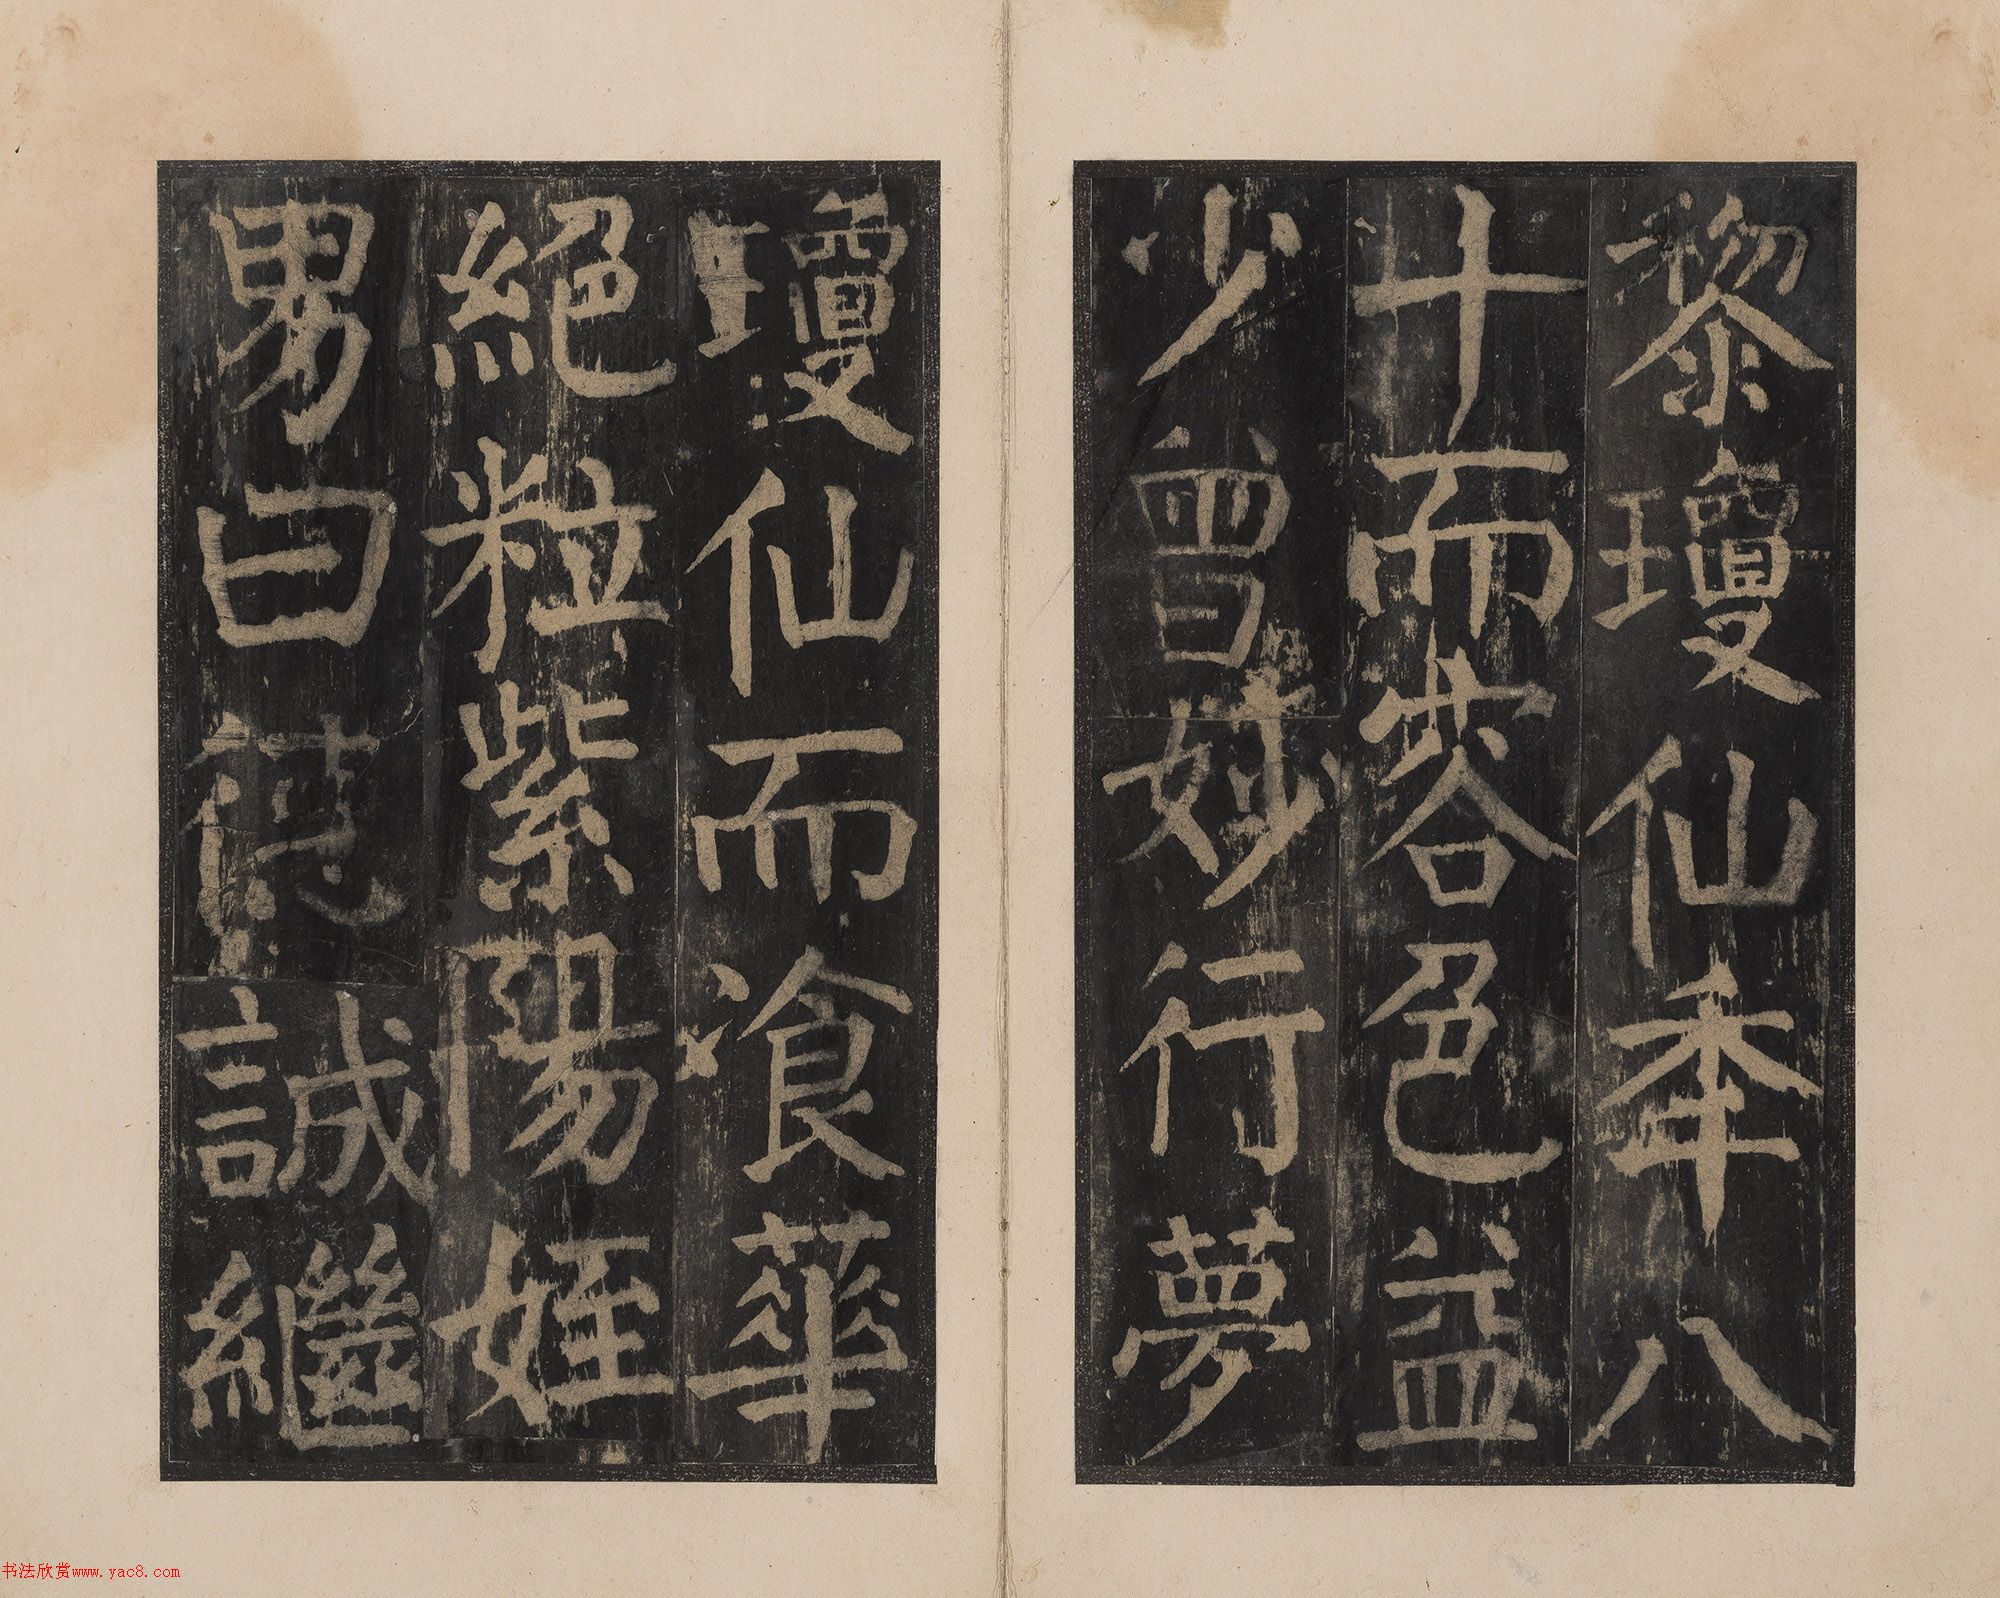 黎瓊仙年八
十而容色益
少曾妙行夢
瓊仙而飡華
絕粒紫陽姪
男曰德誠繼
书法欣赏www.yac8.com